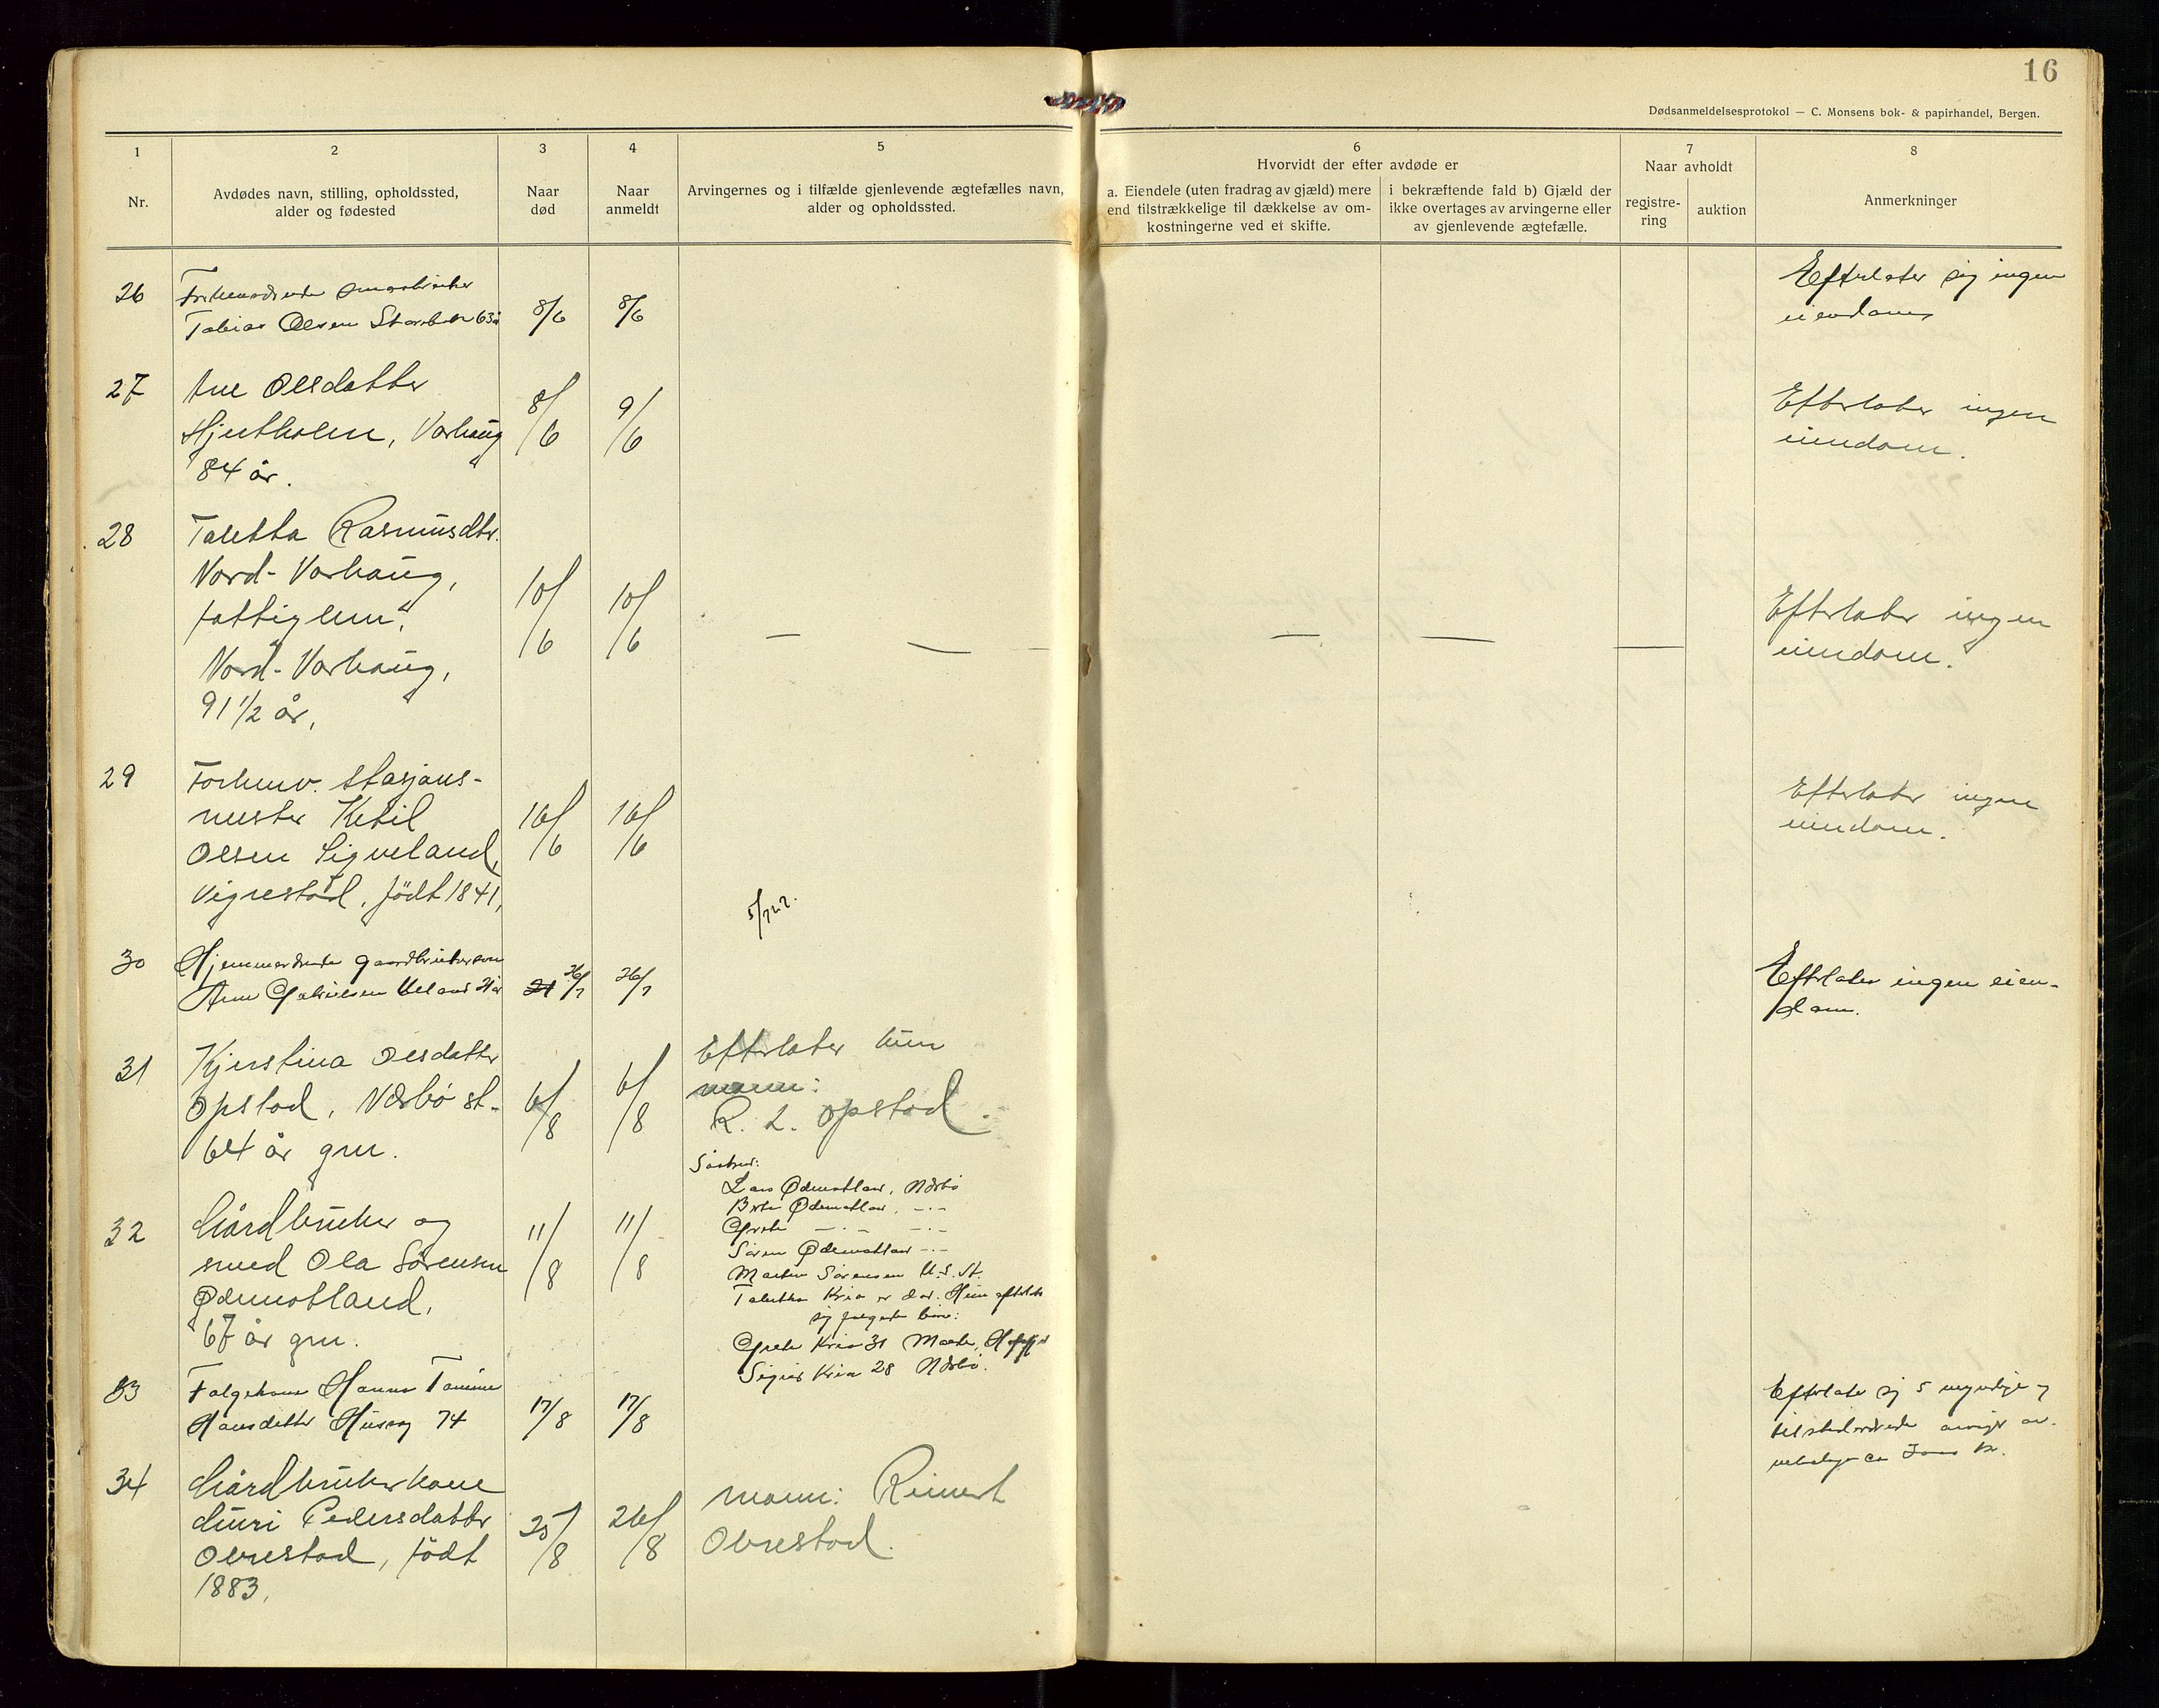 16
Dødsanmeldelsesprotokol — C. Monsens bok- & papirhandel, Bergen.
1
Nr.
2
Avdødes navn, stilling, opholdssted,
alder og fødested
3
Naar
død
4
Naar
anmeldt
5
Arvingernes og i tilfælde gjenlevende ægtefælles navn,
alder og opholdssted.
6
Hvorvidt der efter avdøde er
a. Eiendele (uten fradrag av gjæld) mere
end tilstrækkelige til dækkelse av om-
kostningerne ved et skifte.
i bekræftende fald b) Gjæld der
ikke overtages av arvingerne eller
av gjenlevende ægtefælle.
7
Naar avholdt
registre-
ring
auktion
8
Anmerkninger
26
Tobias Olsen 63 år
8/6
8/6
Efterlater sig ingen
eiendom
27
Ane Olsdatter
Hjertholm, Varhaug
84 år.
8/6
9/6
Efterlater ingen
eiendom.
28
Taletta Rasmusdtr.
Nord-Varhaug,
fattiglem,
Nord-Varhaug,
91 1/2 år,
10/6
10/6
— — — — —
Efterlater ingen
eiendom.
29
Forhenv. stasjons-
mester Ketil
Olsen Sigveland,
Vigrestad, födt 1841,
16/6
16/6
Efterlater ingen
eiendom.
30
Hjemmeværende gaardbrukersøn
Arne Gabrielsen Ueland 21 år
26/7
26/7
5/7 22.
Efterlater ingen eien-
dom.
31
Kjerstina Olsdatter
Opstad, Nærbö st.
64 år gm.
6/8
6/8
Efterlater kun
mann:
R. L. Opstad.
32
Gårdbruker og
smed Ola Sörensen
Ødemotland,
67 år gm.
11/8
11/8
Lars Ødemotland, Nærbö
Berte Ødemotland, —·—
Grete —·— —·—
Sören Ødemotland —·—
Martin Sörensen U.S. St.
Taletta Kria er död. Hun efterlot
sig følgende barn:
Grete Kria 31
Sigrid Kria 28 Nærbö.
33
Folgekone Hanna Tomine
Hansdatter 74
17/8
17/8
Efterlater sig 5 myndige og
tilstedeværende arvinger
34
Gårdbrukerkone
Guri Pedersdatter
Obrestad, födt
1883.
25/8
26/8
Mann: Reinert
Obrestad.